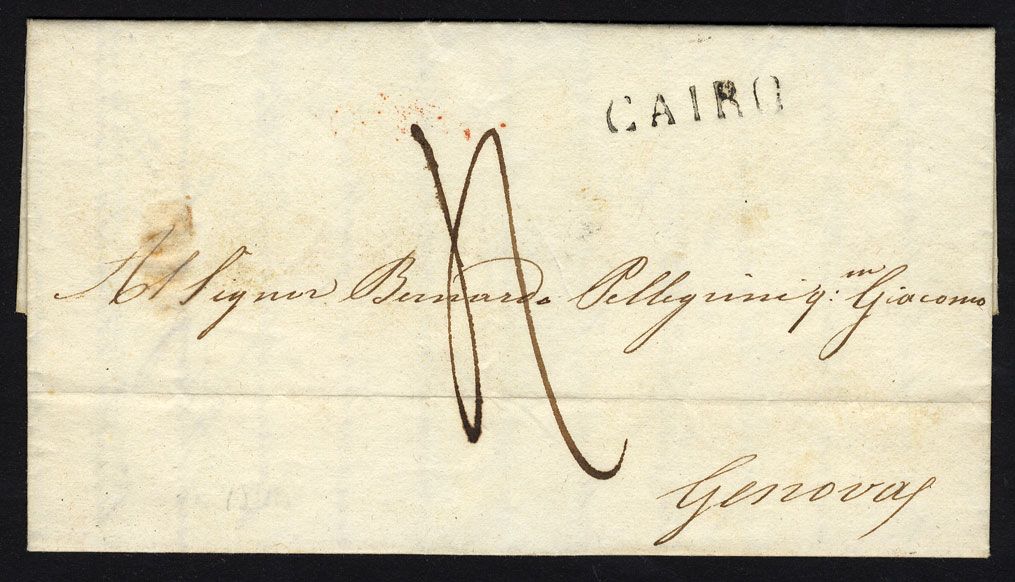 CAIRO
Al Signor Bernardo Pellegrini q.m Giacomo
Genova